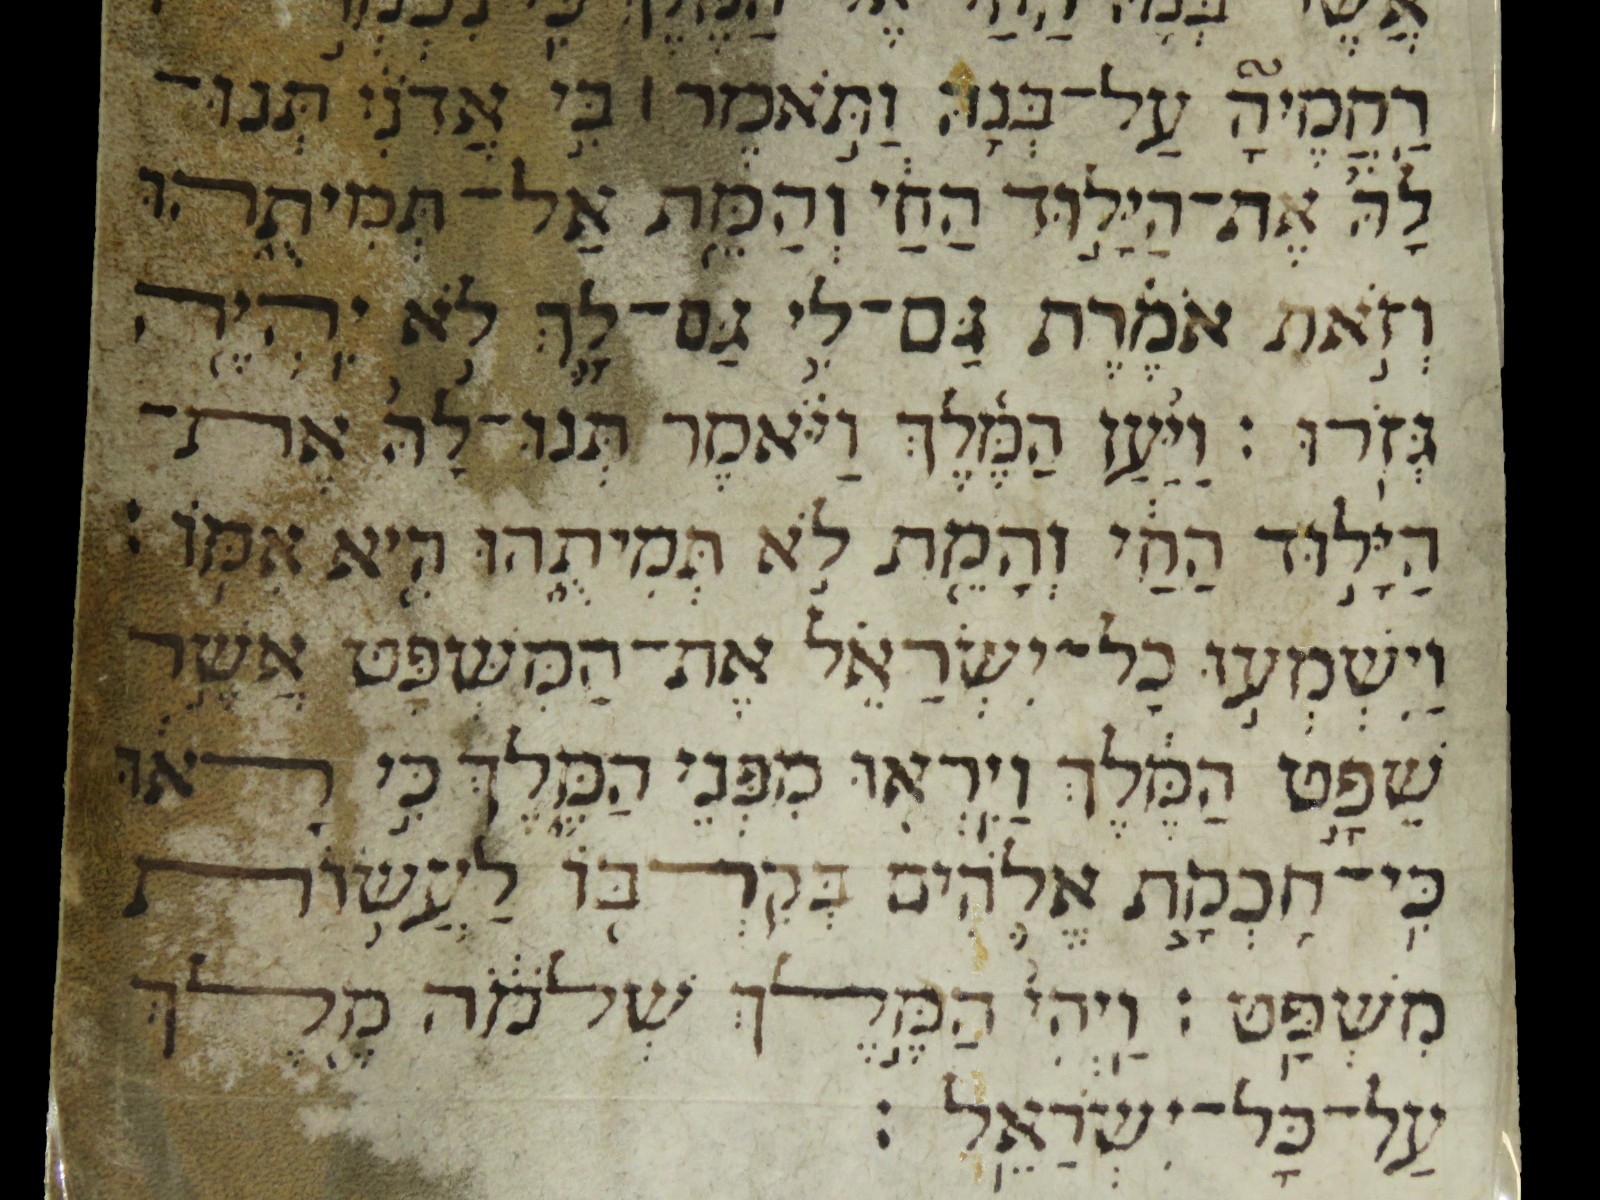 אֲשֶׁר בְּנָהּ הַחַי אֶל הַמֶּלֶךְ כִּי נִכְמְרוּ
רַחֲמֶיהָ֮ עַל־בְּנָהּ֒ וַתֹּ֣אמֶר ׀ בִּ֣י אֲדֹנִ֗י תְּנוּ־
לָהּ֙ אֶת־הַיָּל֣וּד הַחַ֔י וְהָמֵ֖ת אַל־תְּמִיתֻ֑הוּ
וְזֹ֣את אֹמֶ֗רֶת גַּם־לִ֥י גַם־לָ֛ךְ לֹ֥א יִהְיֶ֖ה
גְּזֹֽרוּ׃ וַיַּ֨עַן הַמֶּ֜לֶךְ וַיֹּ֗אמֶר תְּנוּ־לָהּ֙ אֶת־
הַיָּל֣וּד הַחַ֔י וְהָמֵ֖ת לֹ֣א תְמִיתֻ֑הוּ הִ֖יא אִמּֽוֹ׃
וַיִּשְׁמְע֣וּ כָל־יִשְׂרָאֵ֗ל אֶת־הַמִּשְׁפָּט֙ אֲשֶׁ֣ר
שָׁפַ֣ט הַמֶּ֔לֶךְ וַיִּֽרְא֖וּ מִפְּנֵ֣י הַמֶּ֑לֶךְ כִּ֣י רָא֔וּ
כִּֽי־חָכְמַ֧ת אֱלֹהִ֛ים בְּקִרְבּ֖וֹ לַעֲשׂ֥וֹת
מִשְׁפָּֽט׃ וַֽיְהִי֙ הַמֶּ֣לֶךְ שְׁלֹמֹ֔ה מֶ֖לֶךְ
עַל־כָּל־יִשְׂרָאֵֽל׃